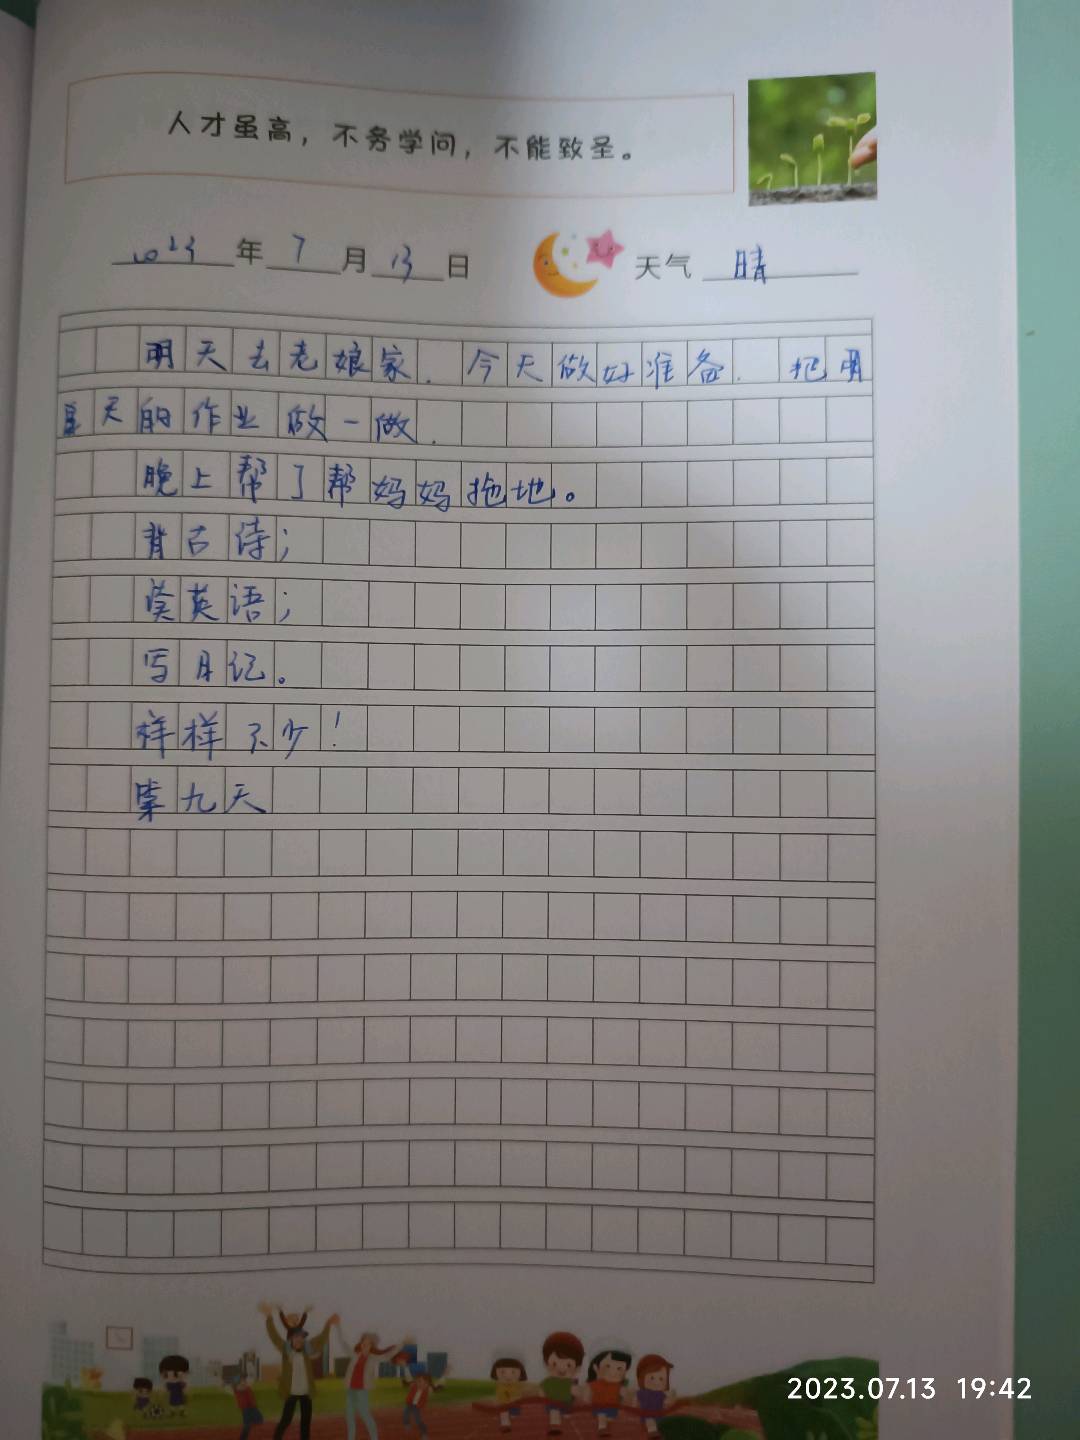 人才虽高，不务学问，不能致圣。
2023年7月13日 天气 晴
明天去老娘家．今天做好准备．把明
天的作业做一做．
晚上帮了帮妈妈拖地。
背古诗；
读英语；
写日记。
样样不少！
第九天
2023.07.13 19:42